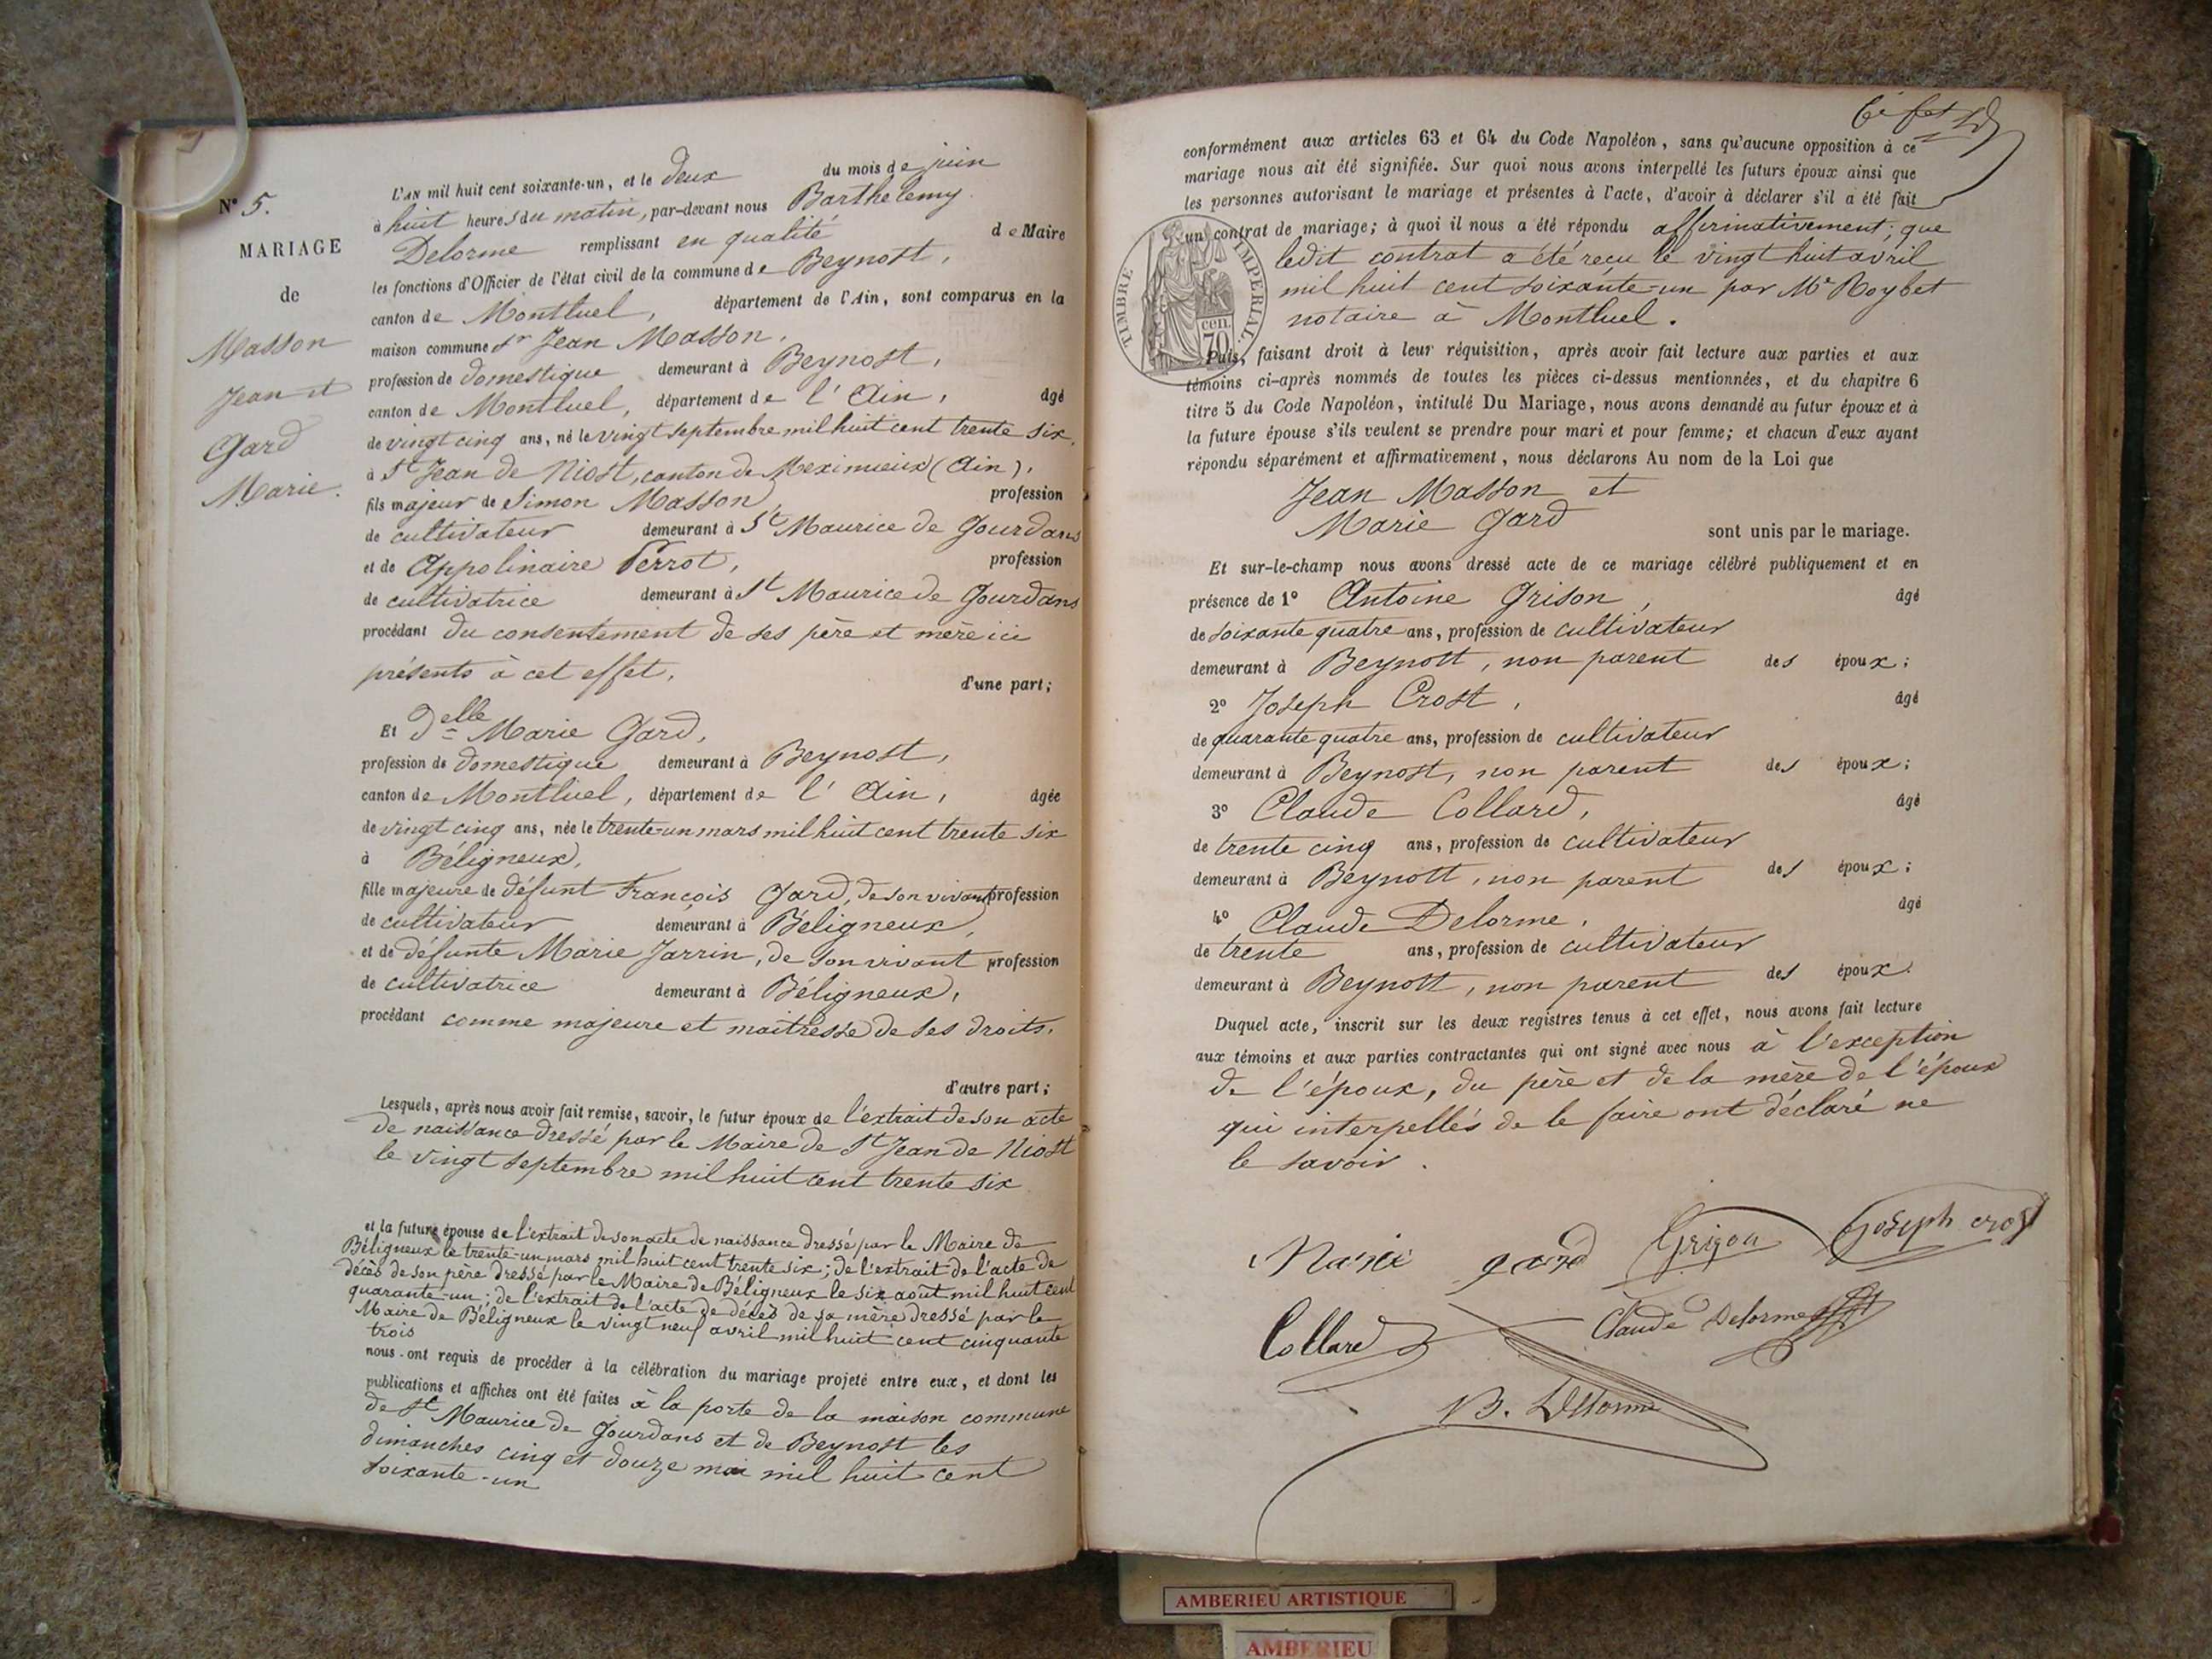 N° 5.
MARIAGE
de
Masson
Jean et
Gard
Marie.
L'AN mil huit cent soixante-un, et le deux du mois de juin
à huit heures du matin, par-devant nous Barthelemy
Delorme remplissant en qualité de Maire
les fonctions d'Officier de l'état civil de la commune de Beynost,
canton de Montluel, département de l'Ain, sont comparus en la
maison commune Sr Jean Masson,
profession de domestique demeurant à Beynost,
canton de Montluel, département de l'Ain, âgé
de vingt cinq ans, né le vingt septembre mil huit cent trente six,
à St Jean de Niost, canton de Meximieux (Ain),
fils majeur de Simon Masson, profession
de cultivateur demeurant à St Maurice de Gourdans
et de Appolinaire Perrot, profession
de cultivatrice demeurant à St Maurice de Gourdans
procédant du consentement de ses père et mère ici
présents à cet effet, d'une part;
Et Delle Marie Gard,
profession de domestique demeurant à Beynost,
canton de Montluel, département de l'Ain, âgée
de vingt cinq ans, née le trente-un mars mil huit cent trente six
à Béligneux,
fille majeure de défunt François Gard, de son vivant profession
de cultivateur demeurant à Béligneux,
et de défunte Marie Jarrin, de son vivant profession
de cultivatrice demeurant à Béligneux,
procédant comme majeure et maitresse de ses droits,
d'autre part;
Lesquels, après nous avoir fait remise, savoir, le futur époux de l'extrait de son acte
de naissance dressé par le Maire de St Jean de Niost
le vingt septembre mil huit cent trente six
et la future épouse de l'extrait de son acte de naissance dressé par le Maire de
Béligneux le trente-un mars mil huit cent trente six; de l'extrait de l'acte de
décès de son père dressé par le Maire de Béligneux le six août mil huit cent
quarante-un; de l'extrait de l'acte de décès de sa mère dressé par le
Maire de Béligneux le vingt neuf avril mil huit cent cinquante
trois
nous ont requis de procéder à la célébration du mariage projeté entre eux, et dont les
publications et affiches ont été faites à la porte de la maison commune
de St Maurice de Gourdans et de Beynost les
dimanches cinq et douze mai mil huit cent
soixante-un
conformément aux articles 63 et 64 du Code Napoléon, sans qu'aucune opposition à ce
mariage nous ait été signifiée. Sur quoi nous avons interpellé les futurs époux ainsi que
les personnes autorisant le mariage et présentes à l'acte, d'avoir à déclarer s'il a été fait
un contrat de mariage; à quoi il nous a été répondu affirmativement; que
ledit contrat a été reçu le vingt huit avril
mil huit cent soixante-un par Me Roybet
notaire à Montluel.
TIMBRE IMPERIAL
70 cen.
Puis, faisant droit à leur réquisition, après avoir fait lecture aux parties et aux
témoins ci-après nommés de toutes les pièces ci-dessus mentionnées, et du chapitre 6
titre 5 du Code Napoléon, intitulé Du Mariage, nous avons demandé au futur époux et à
la future épouse s'ils veulent se prendre pour mari et pour femme; et chacun d'eux ayant
répondu séparément et affirmativement, nous déclarons Au nom de la Loi que
Jean Masson et
Marie Gard
sont unis par le mariage.
Et sur-le-champ nous avons dressé acte de ce mariage célébré publiquement et en
présence de 1° Antoine Grison, âgé
de soixante quatre ans, profession de cultivateur
demeurant à Beynost, non parent des époux;
2° Joseph Crost, âgé
de quarante quatre ans, profession de cultivateur
demeurant à Beynost, non parent des époux;
3° Claude Collard, âgé
de trente cinq ans, profession de cultivateur
demeurant à Beynost, non parent des époux;
4° Claude Delorme, âgé
de trente ans, profession de cultivateur
demeurant à Beynost, non parent des époux.
Duquel acte, inscrit sur les deux registres tenus à cet effet, nous avons fait lecture
aux témoins et aux parties contractantes qui ont signé avec nous à l'exception
de l'époux, du père et de la mère de l'époux
qui interpellés de le faire ont déclaré ne
le savoir.
Marie gard Grison Joseph crost
Collard Claude Delorme
B. Delorme
AMBERIEU ARTISTIQUE
AMBERIEU